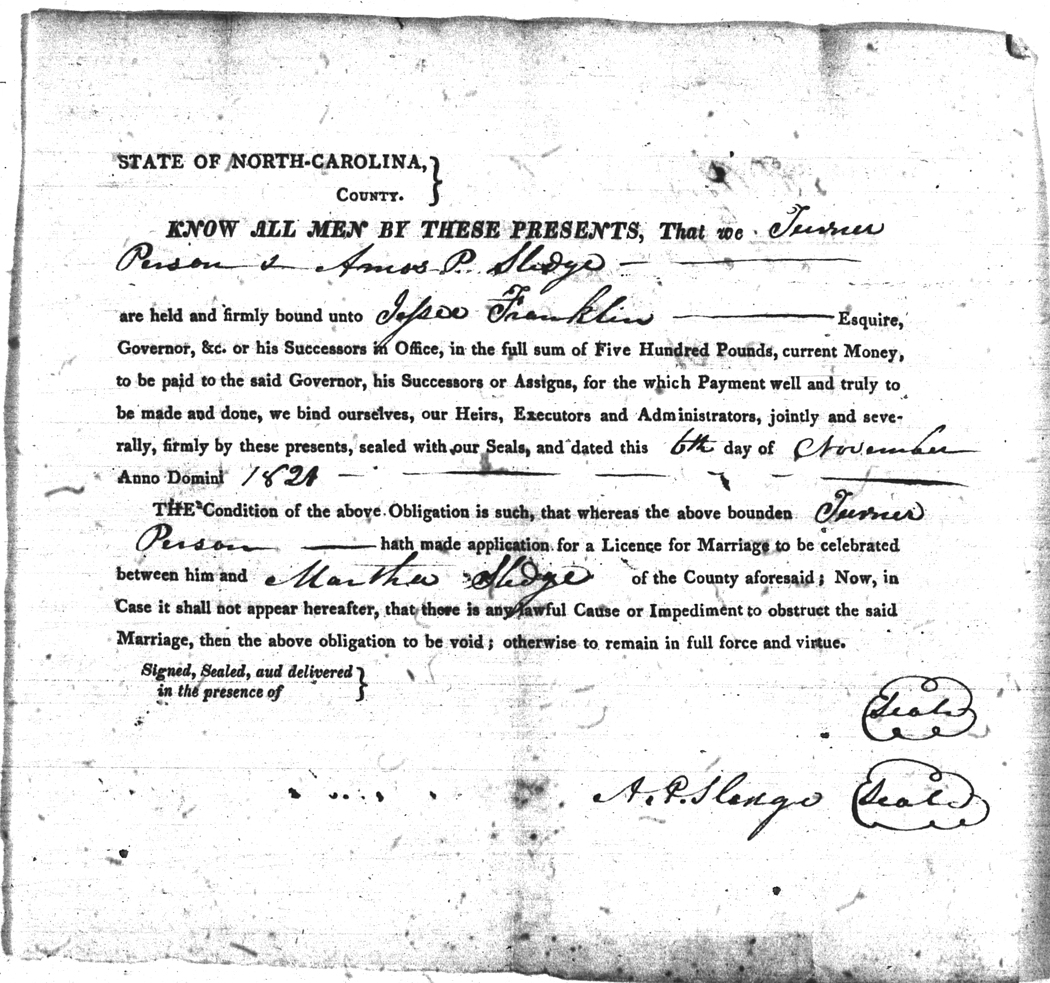 STATE OF NORTH-CAROLINA,
COUNTY.
KNOW ALL MEN BY THESE PRESENTS, That we Turner
Person & Amos P. Sledge
are held and firmly bound unto Jessee Franklin Esquire,
Governor, &c. or his Successors in Office, in the full sum of Five Hundred Pounds, current Money,
to be paid to the said Governor, his Successors or Assigns, for the which Payment well and truly to
be made and done, we bind ourselves, our Heirs, Executors and Administrators, jointly and seve-
rally, firmly by these presents, sealed with our Seals, and dated this 6th day of November
Anno Domini 1821
THE Condition of the above Obligation is such, that whereas the above bounden Turner
Person hath made application for a Licence for Marriage to be celebrated
between him and Martha Sledge of the County aforesaid; Now, in
Case it shall not appear hereafter, that there is any lawful Cause or Impediment to obstruct the said
Marriage, then the above obligation to be void; otherwise to remain in full force and virtue.
Signed, Sealed, aud delivered
in the presence of
Seal
A. P. Slenge Seal